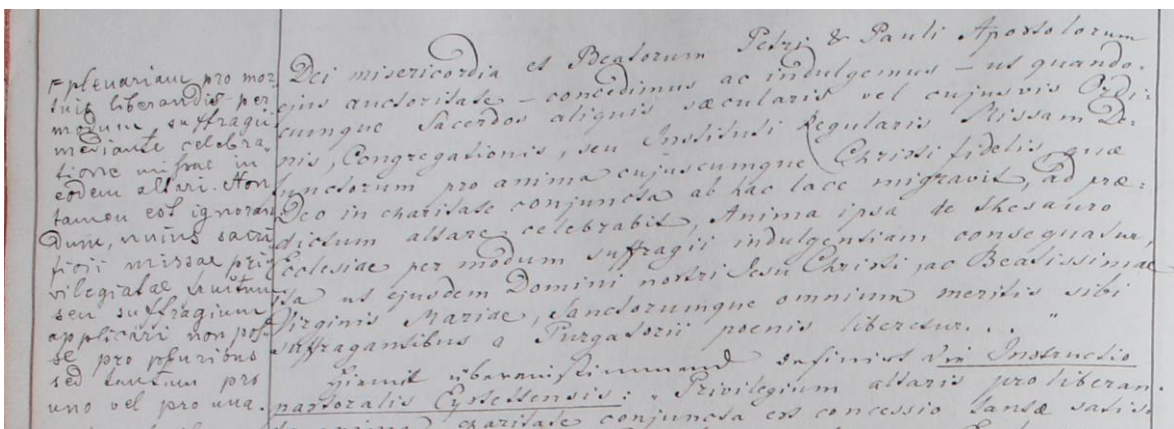 plenariam pro mor
tuis liberandis per
modum suffragii
mediante celebra
tione missae in
eodem altari. Non
tamen est ignoran
dum, unius sacri
ficii missae pri
vilegiatae fructum
seu suffragium
applicari non pos
se pro pluribus
sed tantum pro
uno vel pro una.
Dei misericordia et Beatorum Petri & Pauli Apostolorum
ejus auctoritate – concedimus ac indulgemus – ut quando-
cumque Sacerdos aliquis sæcularis vel cujusvis Ordi-
nis, Congregationis, seu Instituti Regularis Missam De-
functorum pro anima cujuscumque Christi fidelis quæ
Deo in charitate conjuncta ab hac luce migravit, ad præ-
dictum altare celebrabit, Anima ipsa de thesauro
Ecclesiae per modum suffragii indulgentiam consequatur,
ita ut ejusdem Domini nostri Jesu Christi, ac Beatissimae
Virginis Mariae, Sanctorumque omnium meritis sibi
suffragantibus a Purgatorii poenis liberetur. . . "
Hiemit übereinstimmend definirt die Instructio
pastoralis Eystettensis: „ Privilegium altaris pro liberan
anima charitate conjuncta est concessio tantæ satis